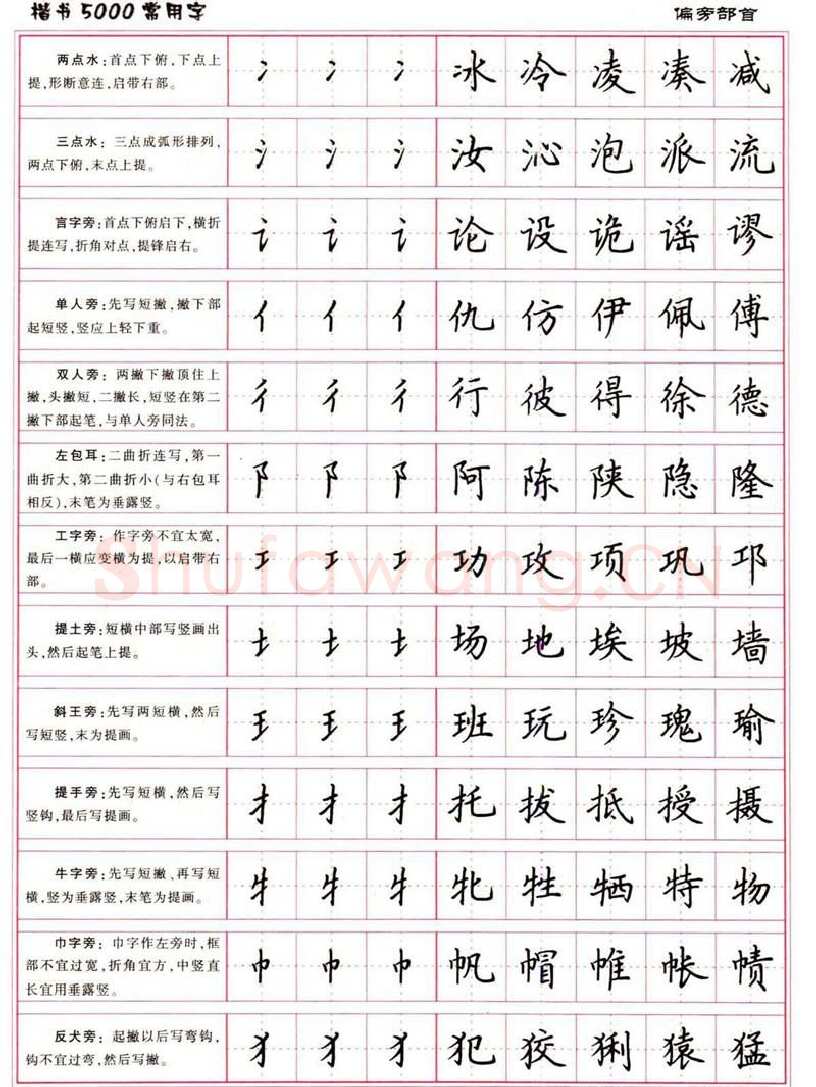 楷书5000常用字
偏旁部首
两点水:首点下俯,下点上
提,形断意连,启带右部。
冫 冫 冫 冰 冷 凌 凑 减
三点水:三点成弧形排列,
两点下俯,末点上提。
氵 氵 氵 汝 沁 泡 派 流
言字旁:首点下俯启下,横折
提连写,折角对点,提锋启右。
讠 讠 讠 论 设 诡 谣 谬
单人旁:先写短撇,撇下部
起短竖,竖应上轻下重。
亻 亻 亻 仇 仿 伊 佩 傅
双人旁:两撇下撇顶住上
撇,头撇短,二撇长,短竖在第二
撇下部起笔,与单人旁同法。
彳 彳 彳 行 彼 得 徐 德
左包耳:二曲折连写,第一
曲折大,第二曲折小(与右包耳
相反),末笔为垂露竖。
阝 阝 阝 阿 陈 陕 隐 隆
工字旁:作字旁不宜太宽,
最后一横应变横为提,以启带右
部。
工 工 工 功 攻 项 巩 邛
提土旁:短横中部写竖画出
头,然后起笔上提。
土 土 土 场 地 埃 坡 墙
斜王旁:先写两短横,然后
写短竖,末为提画。
王 王 王 班 玩 珍 瑰 瑜
提手旁:先写短横,然后写
竖钩,最后写提画。
扌 扌 扌 托 拔 抵 授 摄
牛字旁:先写短撇,再写短
横,竖为垂露竖,末笔为提画。
牜 牜 牜 牝 牲 牺 特 物
巾字旁:巾字作左旁时,框
部不宜过宽。折角宜方,中竖直
长宜用垂露竖。
巾 巾 巾 帆 帽 帷 帐 帻
反犬旁:起撇以后写弯钩,
钩不宜过弯,然后写撇。
犭 犭 犭 犯 狡 猁 猿 猛
Shufawang.CN